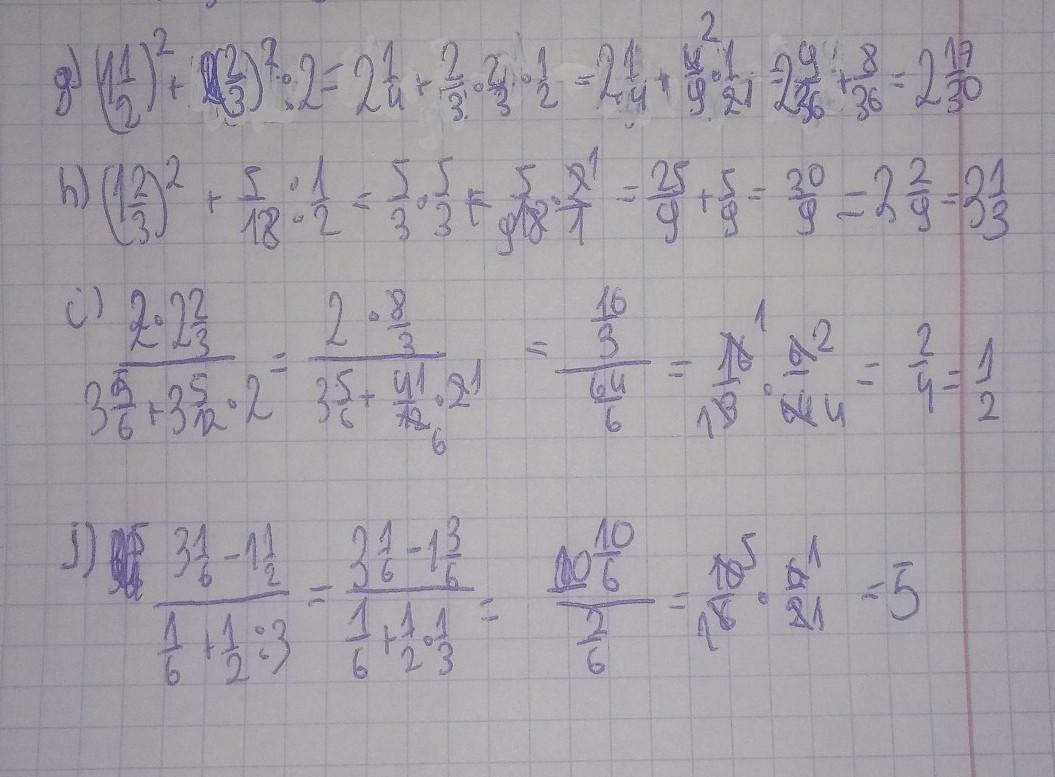 g) (1 1/2)² + (2/3)² : 2 = 2 1/4 + 2/3 · 2/3 · 1/2 = 2 1/4 + 4/9 2 · 1/2 1 = 2 9/36 + 8/36 = 2 17/30
h) (1 2/3)² + 5/18 : 1/2 = 5/3 · 5/3 + 5/18 9 · 2/1 1 = 25/9 + 5/9 = 30/9 = 2 2/9 = 3 1/3
i) (2 · 2 2/3)/(3 5/6 + 3 5/12 · 2) = (2 · 8/3)/(3 5/6 + 41/12 6 · 2 1) = (16/3)/(64/6) = 16 1/3 1 · 6 2/64 4 = 2/4 = 1/2
j) (3 1/6 - 1 1/2)/(1/6 + 1/2 : 3) = (3 1/6 - 1 3/6)/(1/6 + 1/2 · 1/3) = (10/6)/(2/6) = 10 5/6 1 · 6 1/2 1 = 5